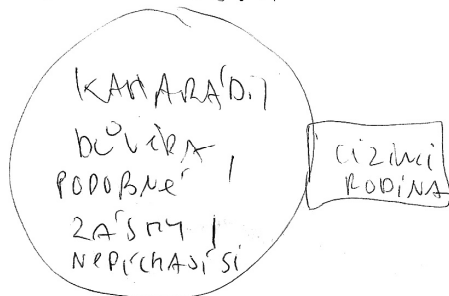 KAMARÁDI
DŮVĚRA
PODOBNÉ
ZÁJMY
NEPÍCHAJÍ SI
CIZINCI
RODINA